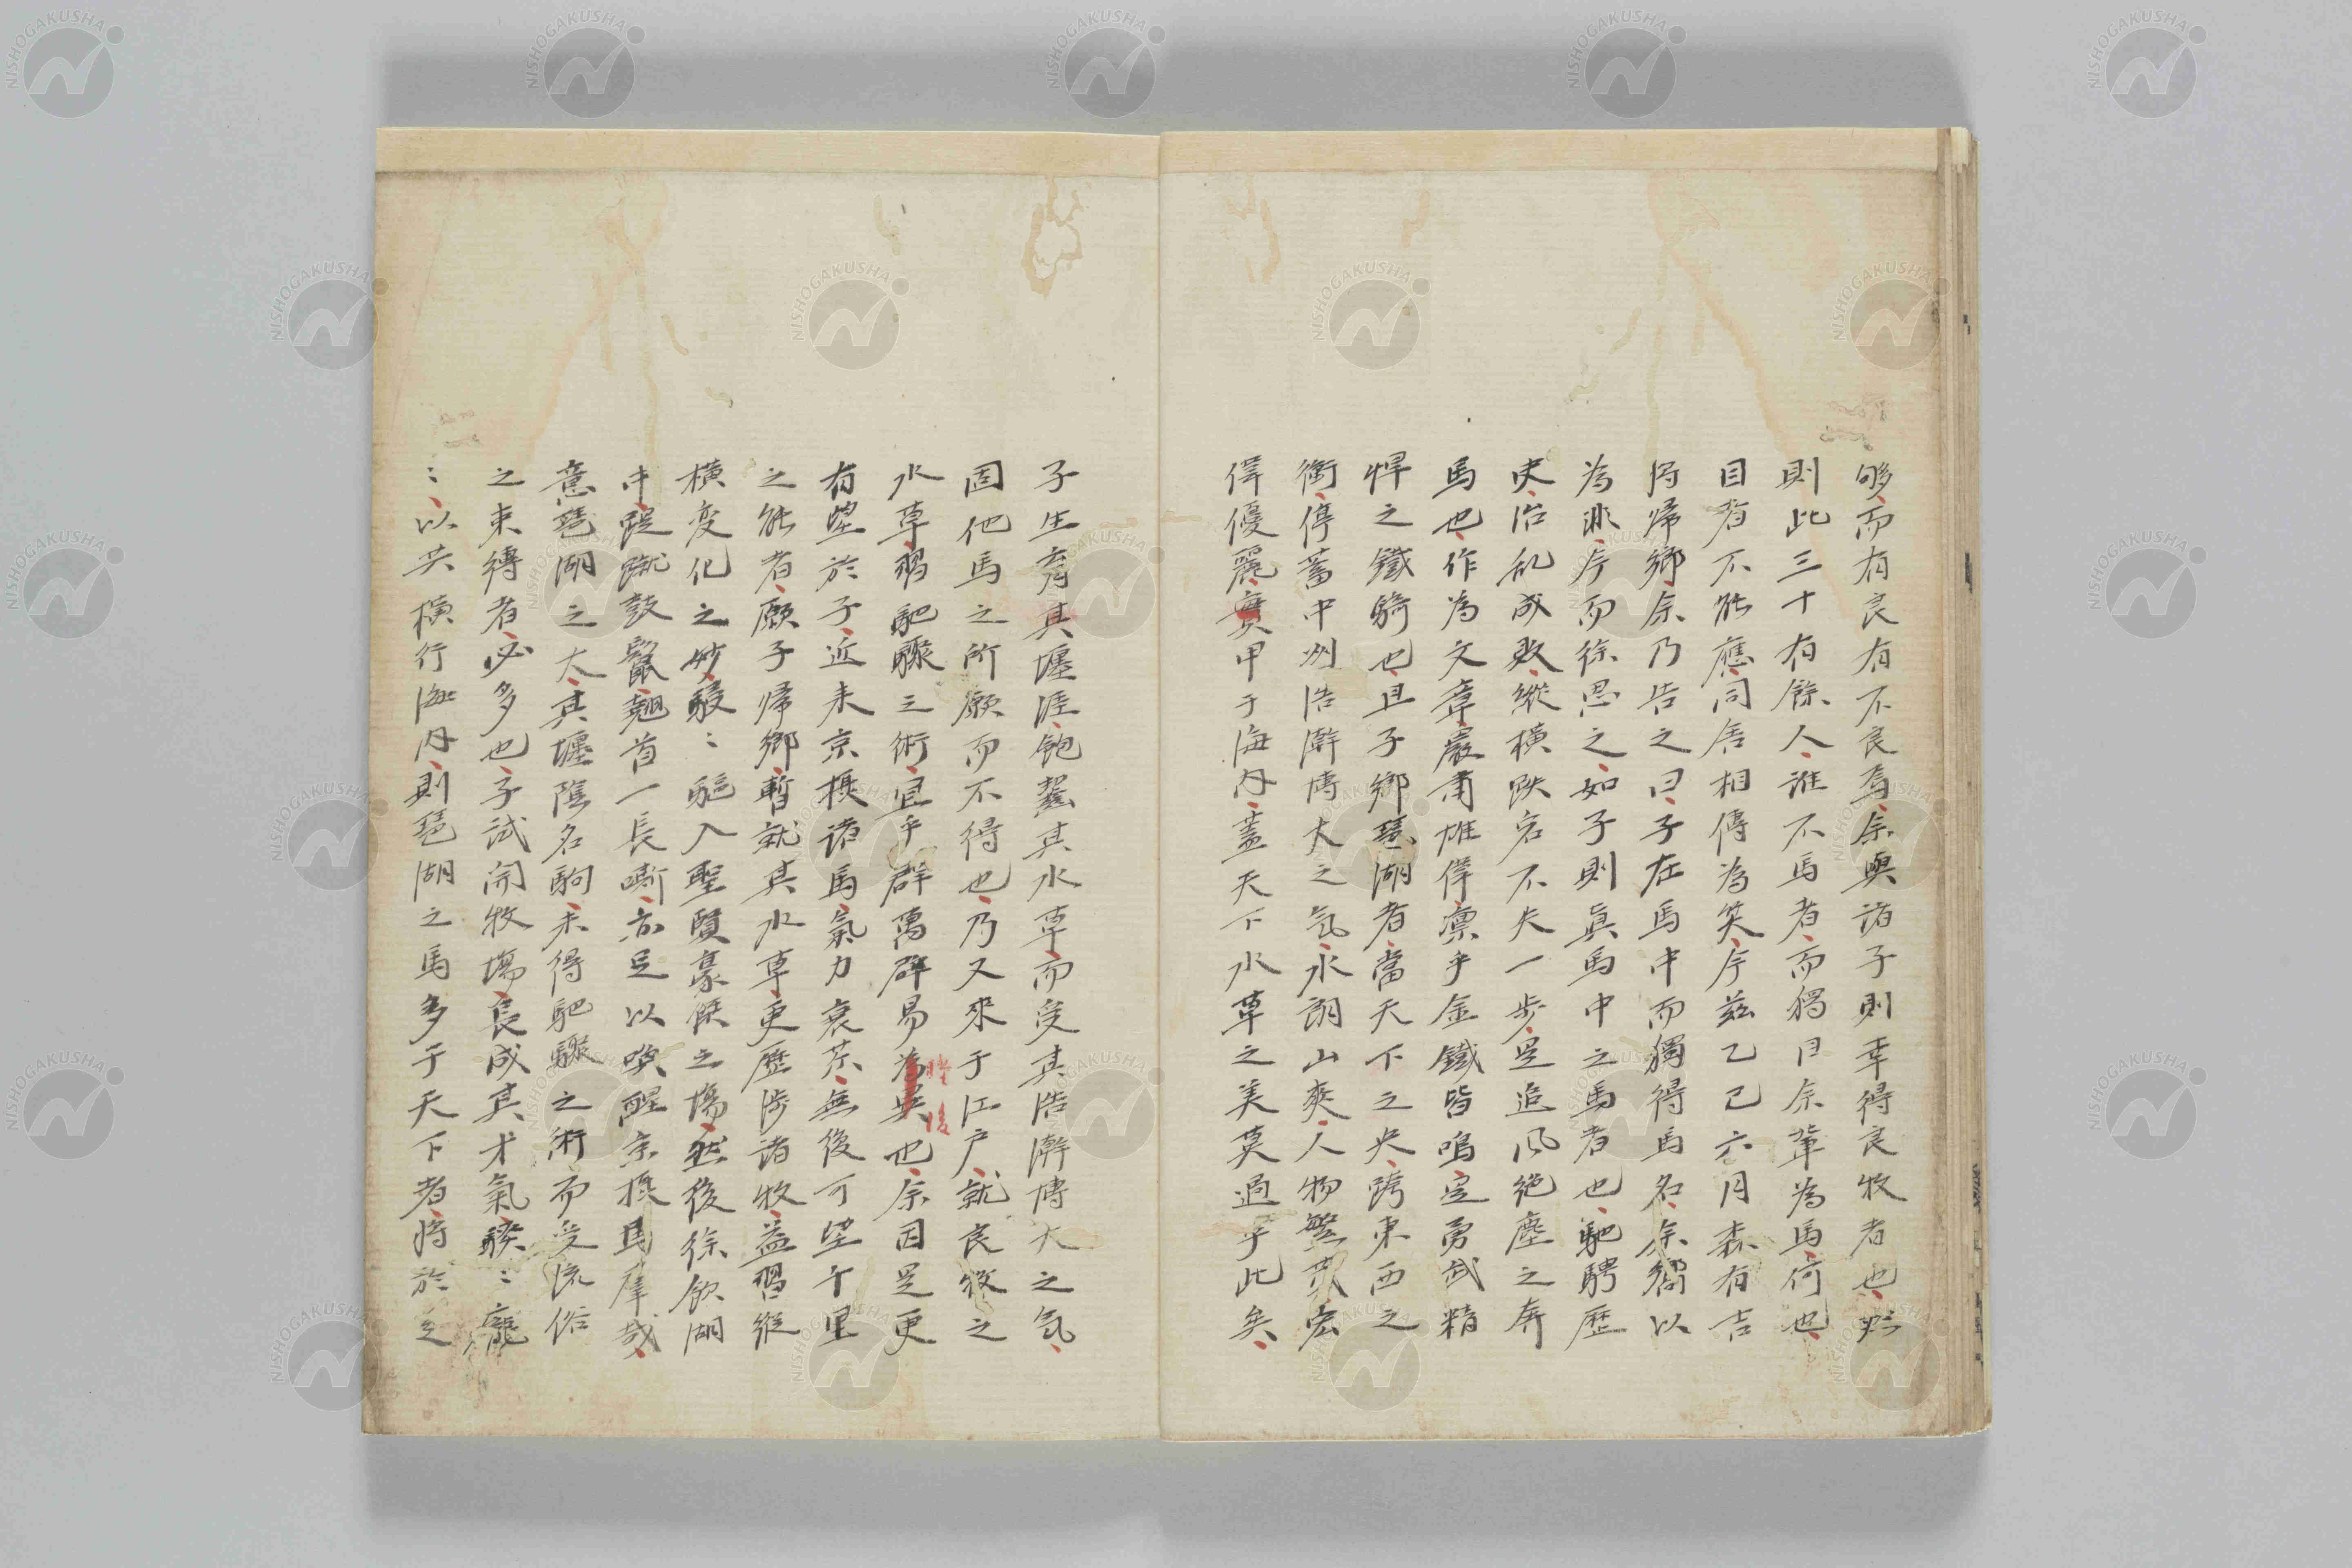 够而有良有不良焉余與諸子則幸得良牧者也然
則此三十有餘人誰不馬者而獨曰余輩為馬何也
目者不能應同居相傳為笑序茲乙巳六月森有吉
将歸鄉余乃告之曰子在馬中而獨得馬名余嚮以
為浪序而徐思之如子則真馬中之馬者也馳騁歴
史治乱成敗縱橫跌宕不失一步是追風絶塵之奔
馬也作為文章嚴肅雄偉凛乎金鐵皆鳴是勇武精
悍之鐵騎也且子鄉琵湖者當天下之央跨東西之
衢停蓄中州浩瀚博大之気水朗山爽人物 宏
偉優麗實甲于海内蓋天下水草之美莫過乎此矣
子生育其壥涯飽齕其水草而受其浩瀚博大之気
固他馬之所願而不得也乃又來于江戸就良牧之
水草習馳驟之術宜乎群萬辟易為 也余因是更
有望於子近来京摂諸馬氣力衰苶無復可望千里
之能者願子帰鄉暫就其水草更歴渉諸牧益習縦
横変化之妙駸〻驅入聖賢豪傑之場然後徐飲湖
中踶蹴鼓鬣翹首一長嘶亦足以喚醒京摂馬群哉
意琵湖之大其壥隂名駒未得馳驟之術而受流俗
之束縛者必多也子試開牧場長成其才氣騤〻龐
〻以共横行海内則琵湖之馬多于天下者将於是
NISHOGAKUSHA